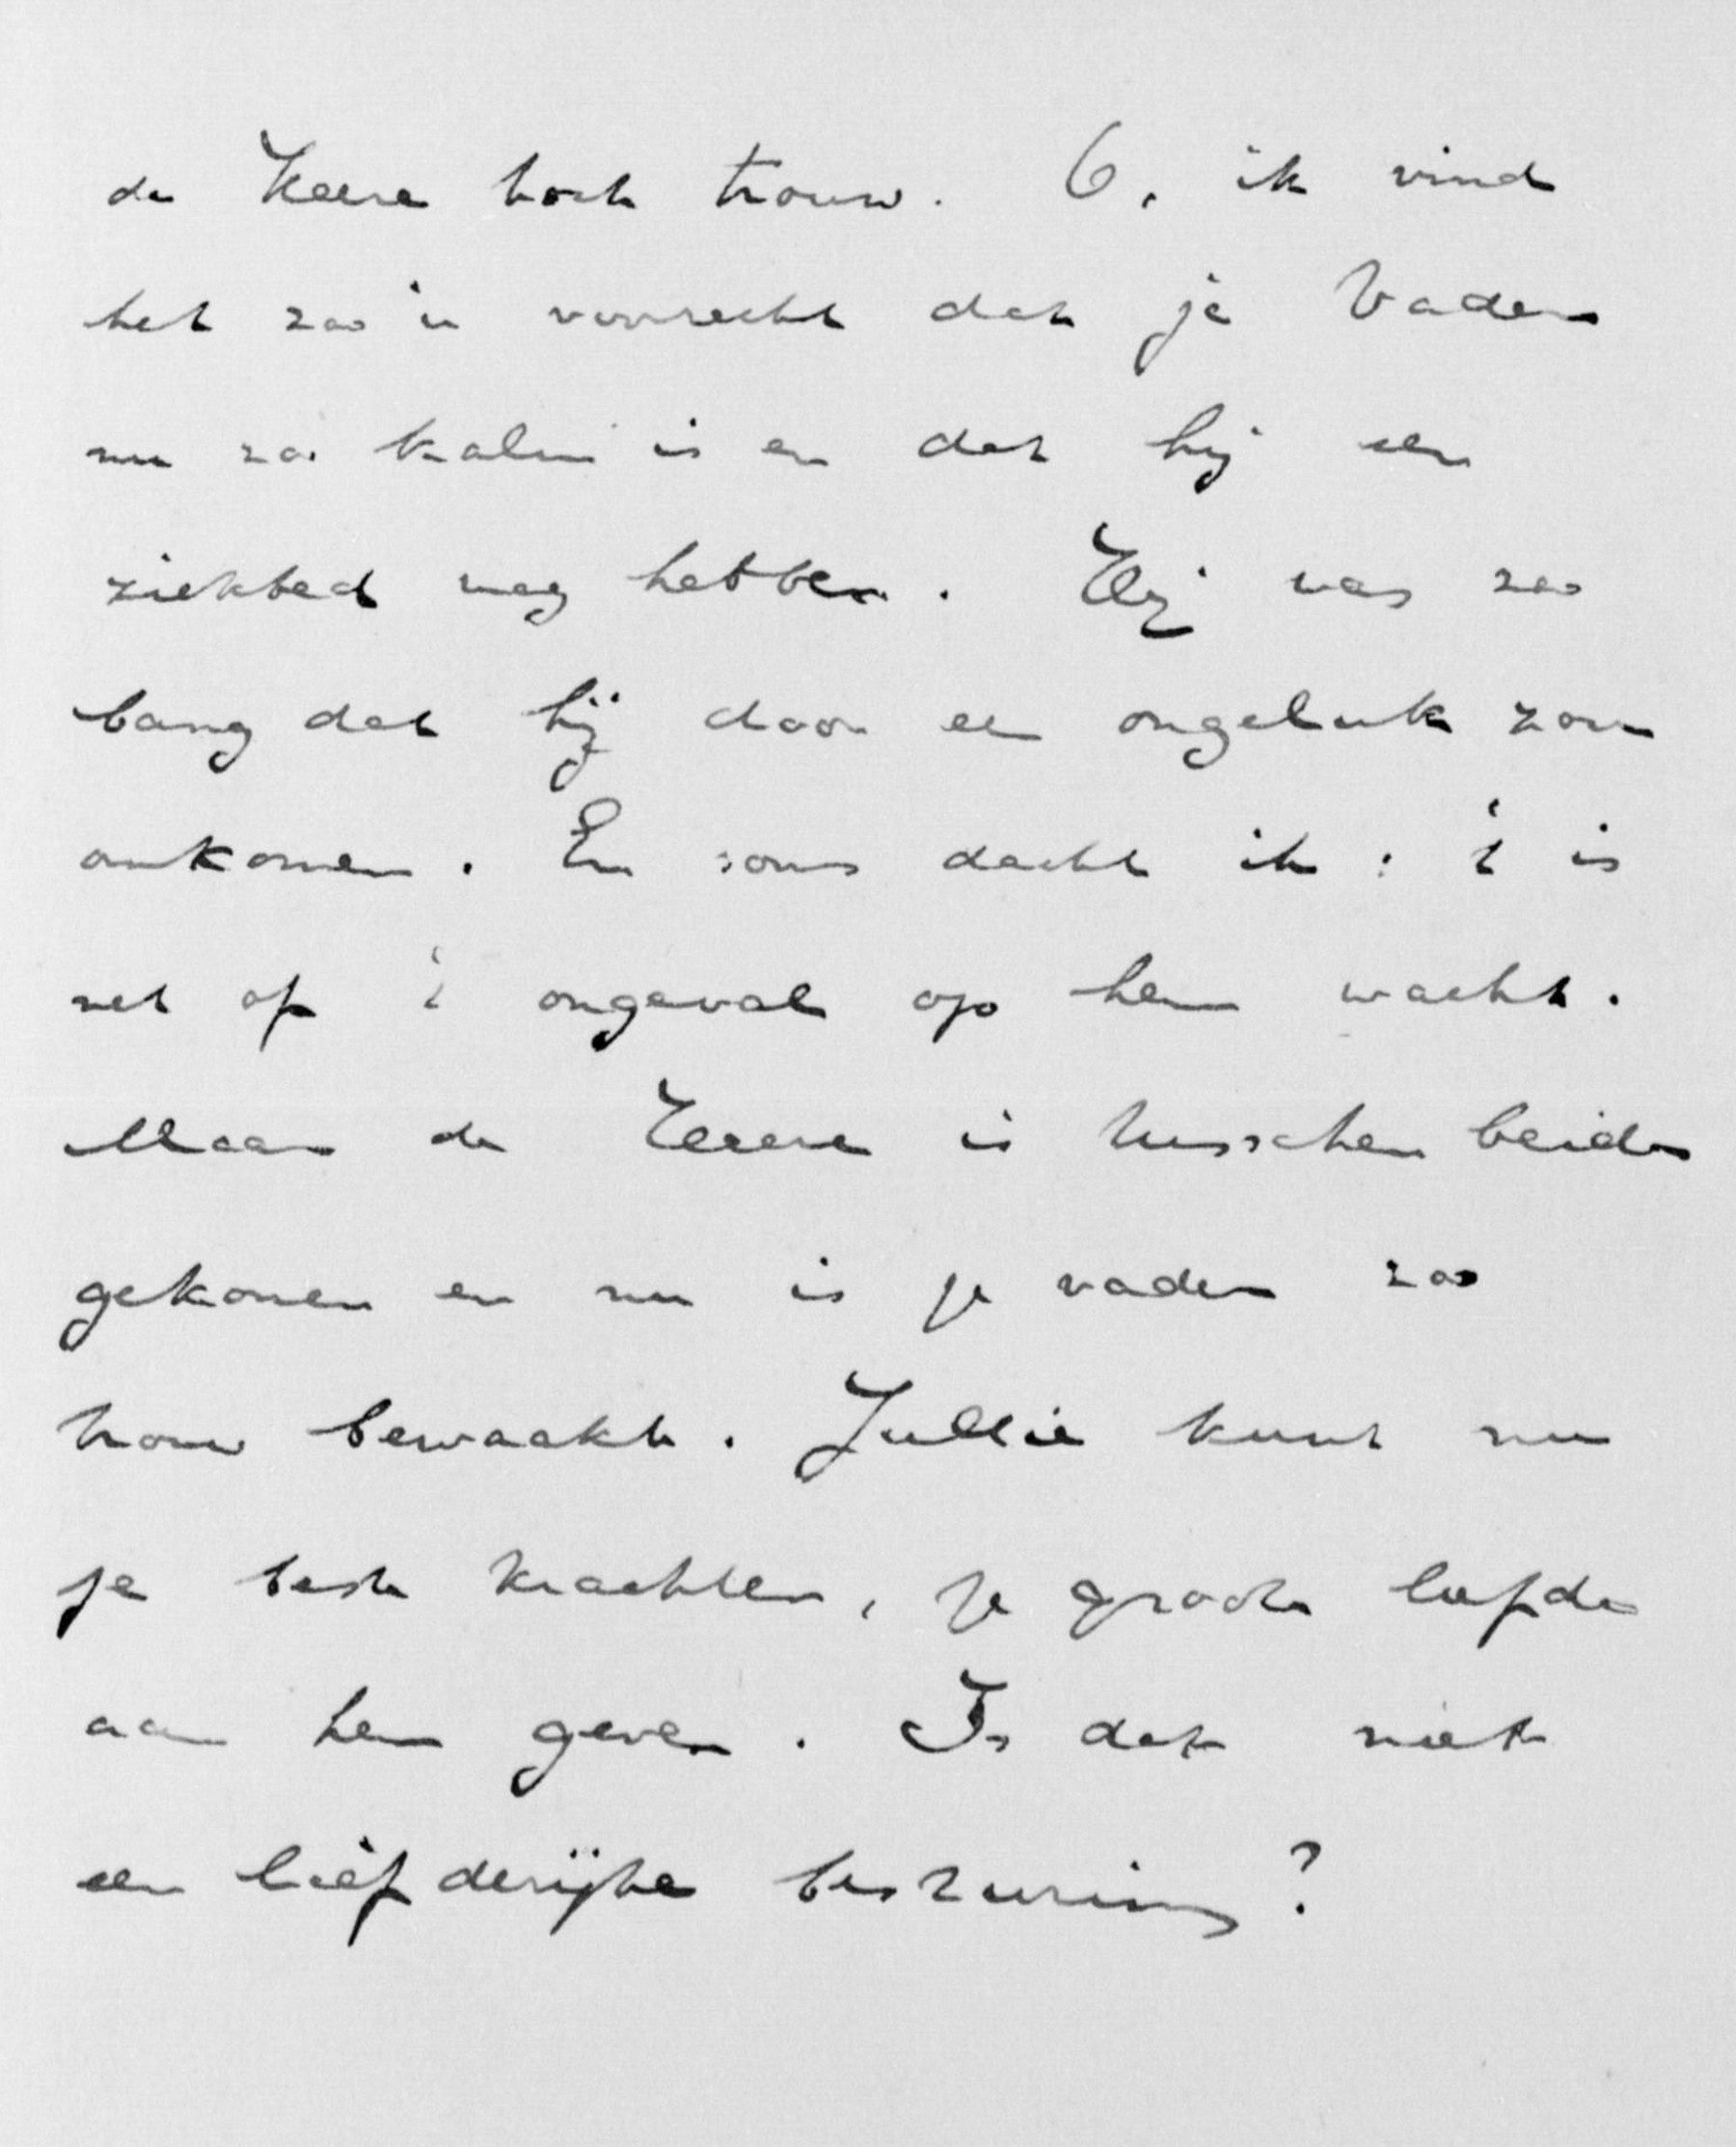 de Heere toch trouw. O, ik vind
het zoo'n voorrecht dat je Vader
nu zoo kalm is en dat hij een
ziekbed mag hebben. Hij was zoo
bang dat hij door een ongeluk zou
omkomen. En soms dacht ik: 't is
net of 't ongeval op hem wacht.
Maar de Heere is tusschen beide
gekomen en nu is je vader zoo
trouw bewaakt. Jullie kunt nu
je beste krachten, je groote liefde
aan hem geven. Is dat niet
een liefderijke besturing?